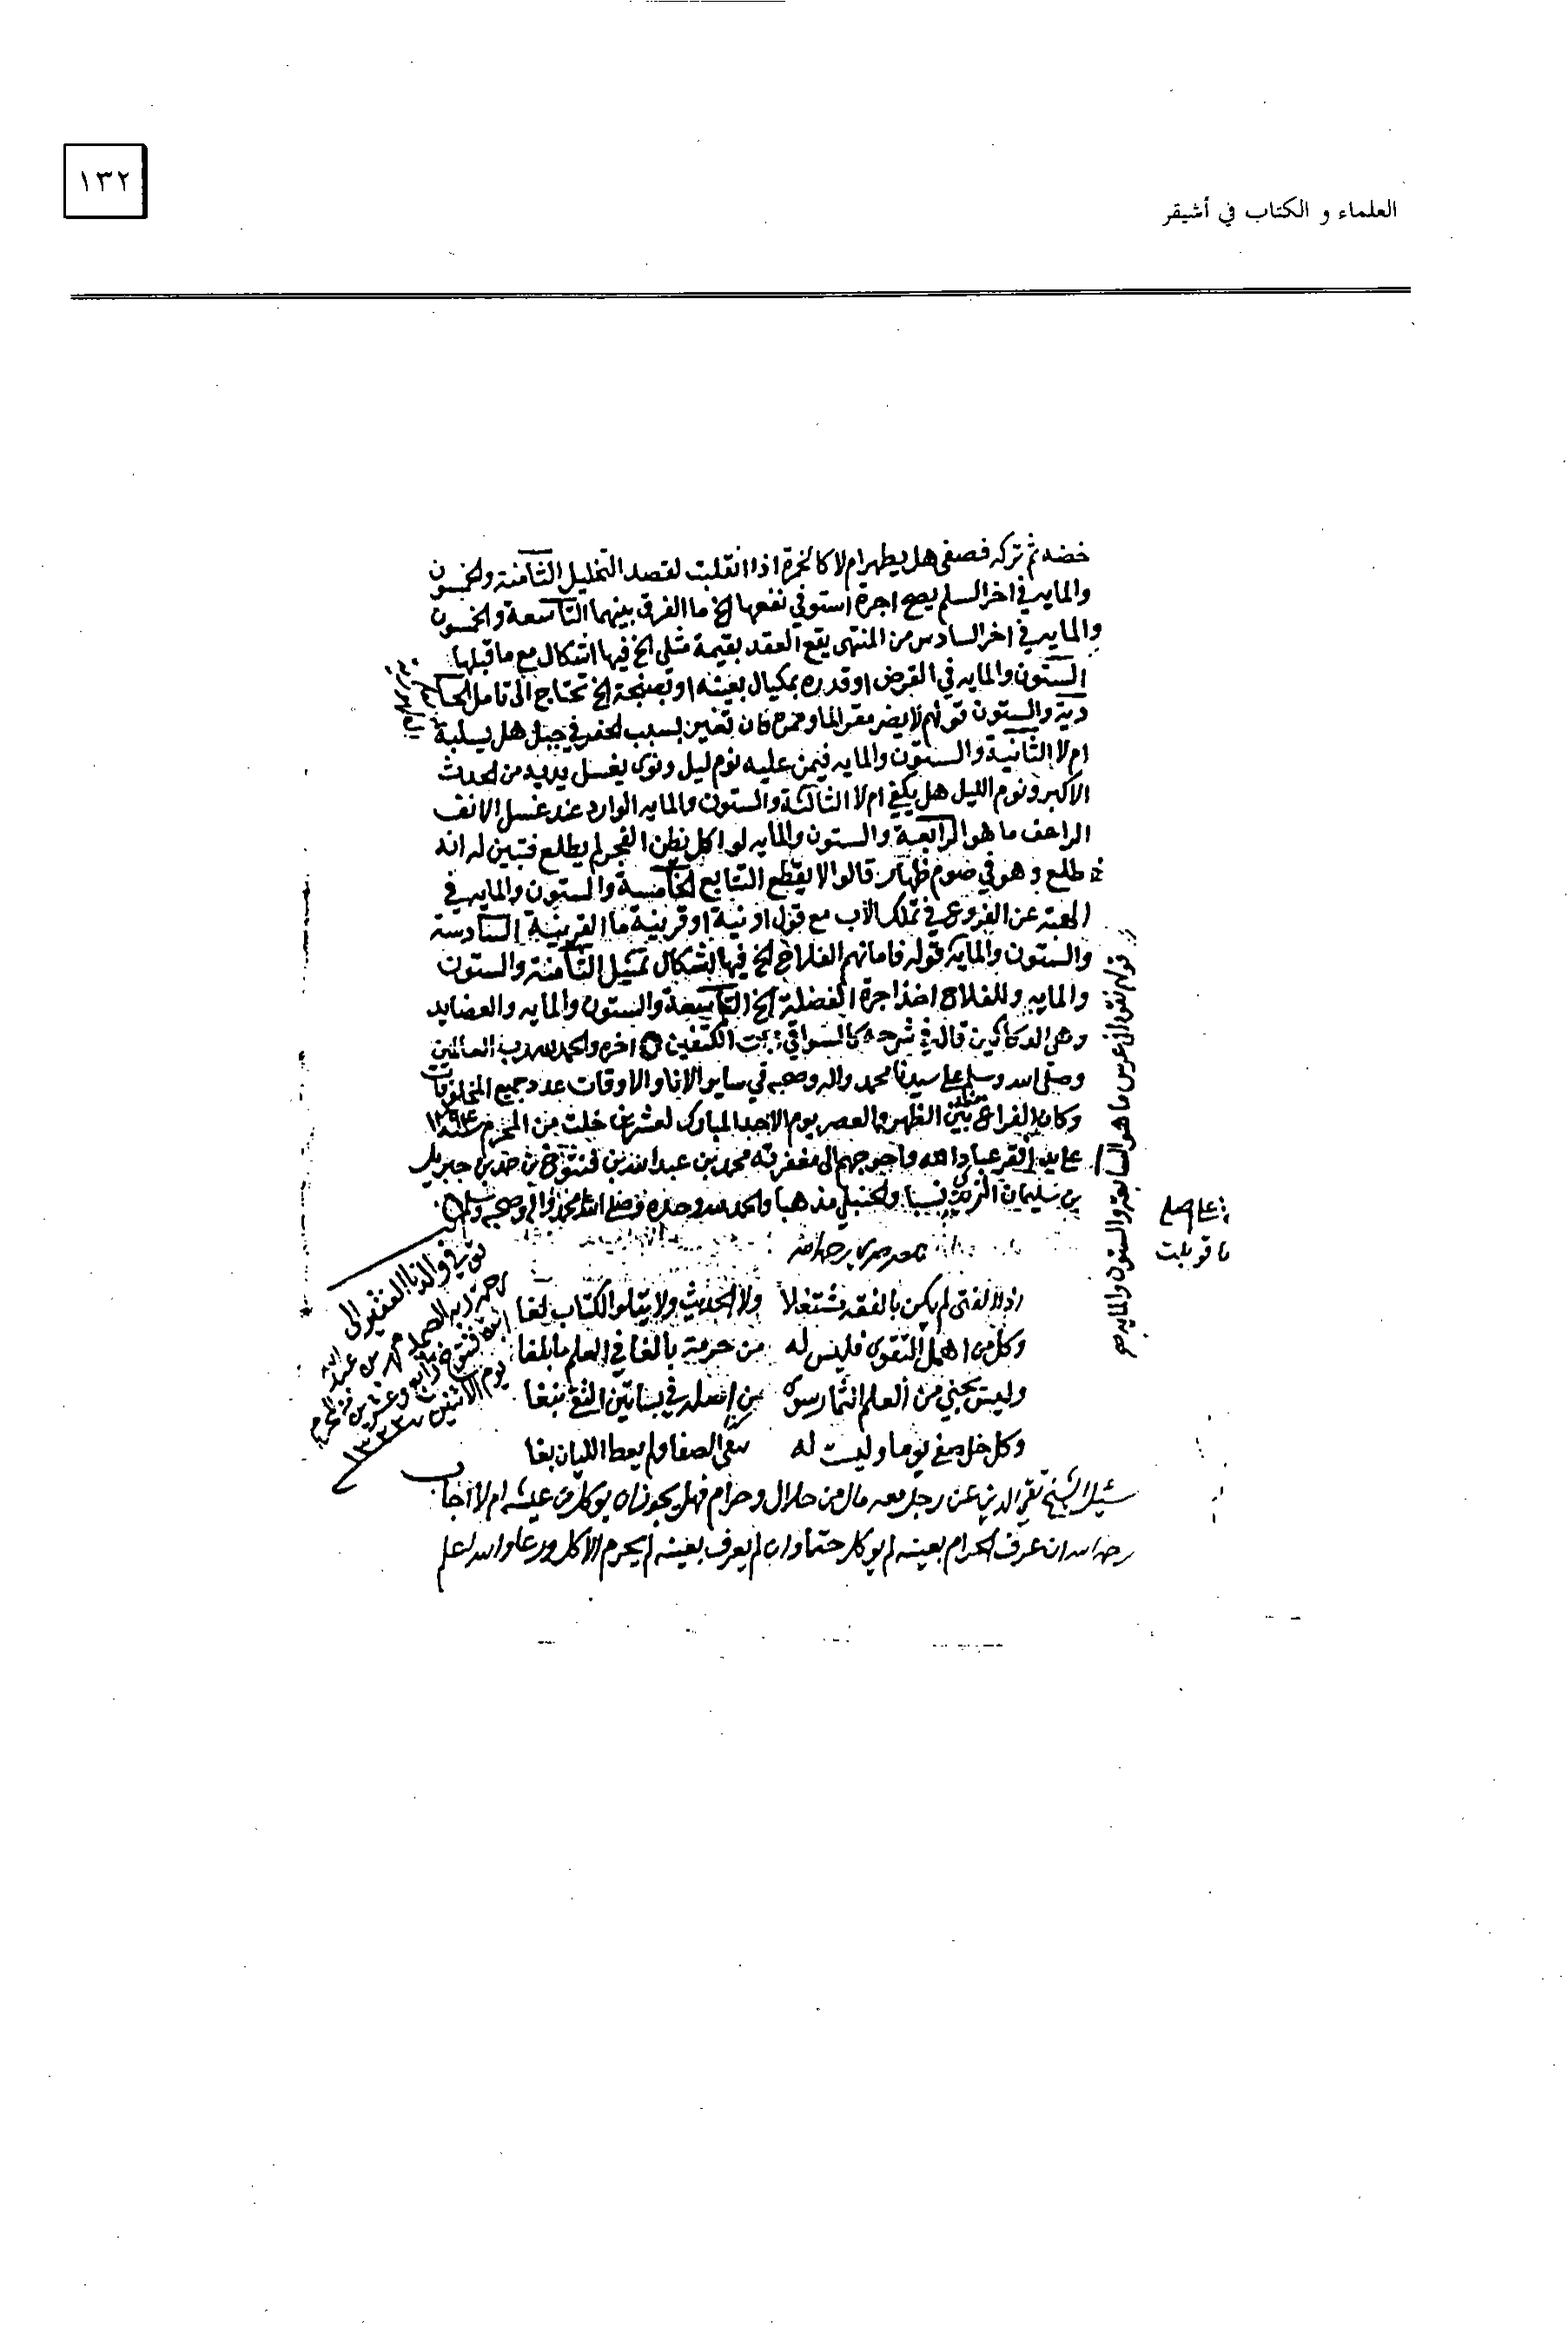 ١٣٢
العلماء و الكتاب في أشيقر
خضه ثم تركه فصفى هل يطهر ام لا كالخمرة اذا انقلبت لقصد التخليل الثامنة والخمسون
والمايه في اخر السلم يصح اجرة استوفي نفعها الخ ما الفرق بينهما التاسعة والخمسون
والمايه في اخر السادس من المنتهى يقع العقد بقيمة مثلي الخ فيها اشكال مع ما قبلها
الستون والمايه في القرض او قدره بمكيال بعينه او بصنجة الخ تحتاج الى تامل الحا
دية والستون قولهم لا يضر مقر الما وممره فان تغير بسبب لحفر في جبل هل يسلبه
ام لا الثانية والستون والمايه فيمن عليه نوم ليل ونوى بغسل يديه من الحدث
الاكبر ونوم الليل هل يكفي ام لا الثالثة والستون والمايه الوارد عند غسل الانف
الراعف ما هو الرابعة والستون والمايه لو اكل يظن الفجر لم يطلع فتبين له انه
طلع وهو في صوم ظهار قالوا لا يقطع التتابع الخامسة والستون والمايه في
العقه عن الفروع في تملك الاب مع قول او نية او قرينة ما القرينة السادسة
والستون والمايه قوله فامانهم الفلاح الخ فيها اشكال تمثيل الثامنة والستون
والمايه وللفلاح اخذ اجرة الفضلة الخ التاسعة والستون والمايه والعضايد
وهي الدكاكين قال في شرحه كالسواقي تحت الكتفين اخره والحمد لله رب العالمين
وصلى الله وسلم على سيدنا محمد واله وصحبه في ساير الانا والاوقات عدد جميع المخلوقات
وكان الفراغ منها بين الظهر والعصر يوم الاحد المبارك لعشر خلت من المحرم سنة
على يد افقر عباد الله واحوجهم الى مغفرته محمد بن عبدالله بن فنتوخ بن حمد بن جبريل
بن سليمان نسبا والحنبلي مذهبا والحمد لله وحده وصلى الله على محمد واله وصحبه وسلم
رحمه الله
اذا الفتى لم يكن بالفقه مشتغلا ولا الحديث ولا يتلو الكتاب لغا
وكل من اهمل التقوى فليس له من حرمة بالغا في العلم ما بلغا
وليس يجني من العلم الثمار سوى من اصله في بساتين التقى نبغا
وكل خل صغى يوما وليت له سقى الصفا ولم يعط اللبان بغا
سئل الشيخ تقي الدين عن رجل معه مال من حلال وحرام فهل يجوز ان يوكل من عيشه ام لا اجاب
رحمه الله ان عرف الحرام بعينه لم يوكل حتما وان لم يعرف بعينه لم يحرم الاكل ورعا والله اعلم
ما هو السابعة والستون والمايه صح
توفي والدنا الفقير الى
رحمة ربه الصمد محمد بن عبدالله
يوم الاثنين
١٣٣٣